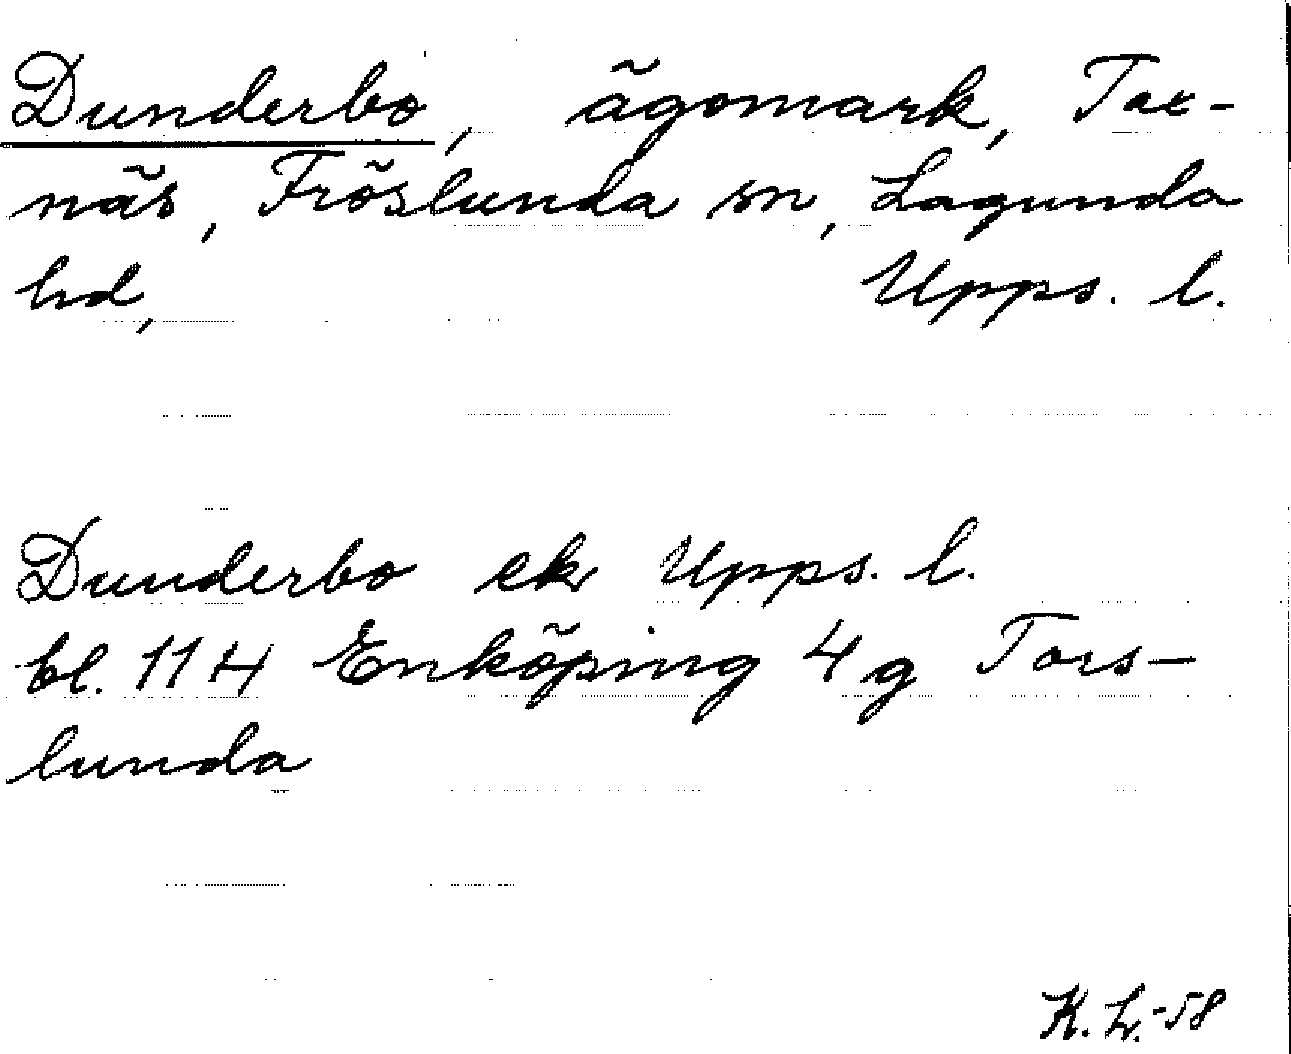 Dunderbo, ägomark, Tax-
näs, Fröslunda sn, Lagunda
hd, Upps. l.
Dunderbo ek Upps. l.
bl. 11 H Enköping 4 g Tors-
lunda
K. L. -58